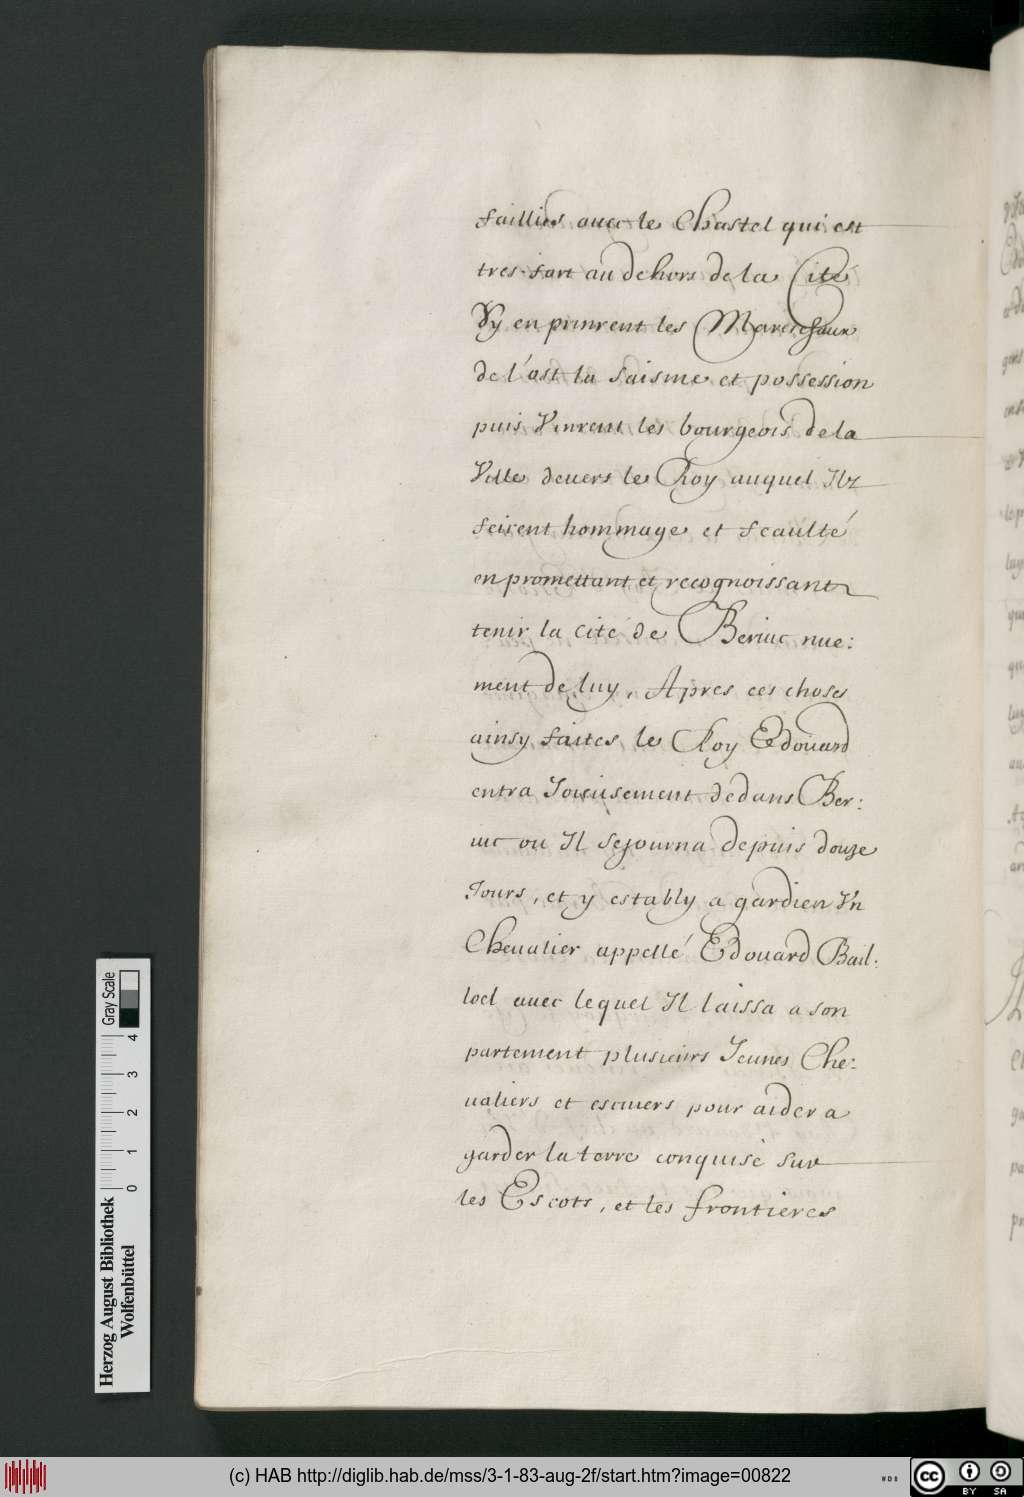 faillies auec le Chastel qui est
tres-fort au dehors de la Cité
Vy en prinrent les Mareschaux
de l'ost la saisine et possession
puis Vinrent les bourgeois de la
Ville deuers le Roy auquel Ilz
feirent hommage et feaulté
en promettant et recognoissant
tenir la cité de Beriuc nue:
ment de luy, Apres ces choses
ainsy faites le Roy Edoüard
entra Joieusement dedans Ber:
iuc ou Il sejourna depuis douze
Jours, et y estably a gardien Vn
Cheualier appellé Edouard Bail:
loel auec lequel Il laissa a son
partement plusieurs Jeunes Che:
ualiers et escuiers pour aider a
garder la terre conquise sur
les Escots, et les frontieres
Herzog August Bibliothek
Wolfenbüttel
0 1 2 3 4
Gray Scale
(c) HAB http://diglib.hab.de/mss/3-1-83-aug-2f/start.htm?image=00822
cc BY SA